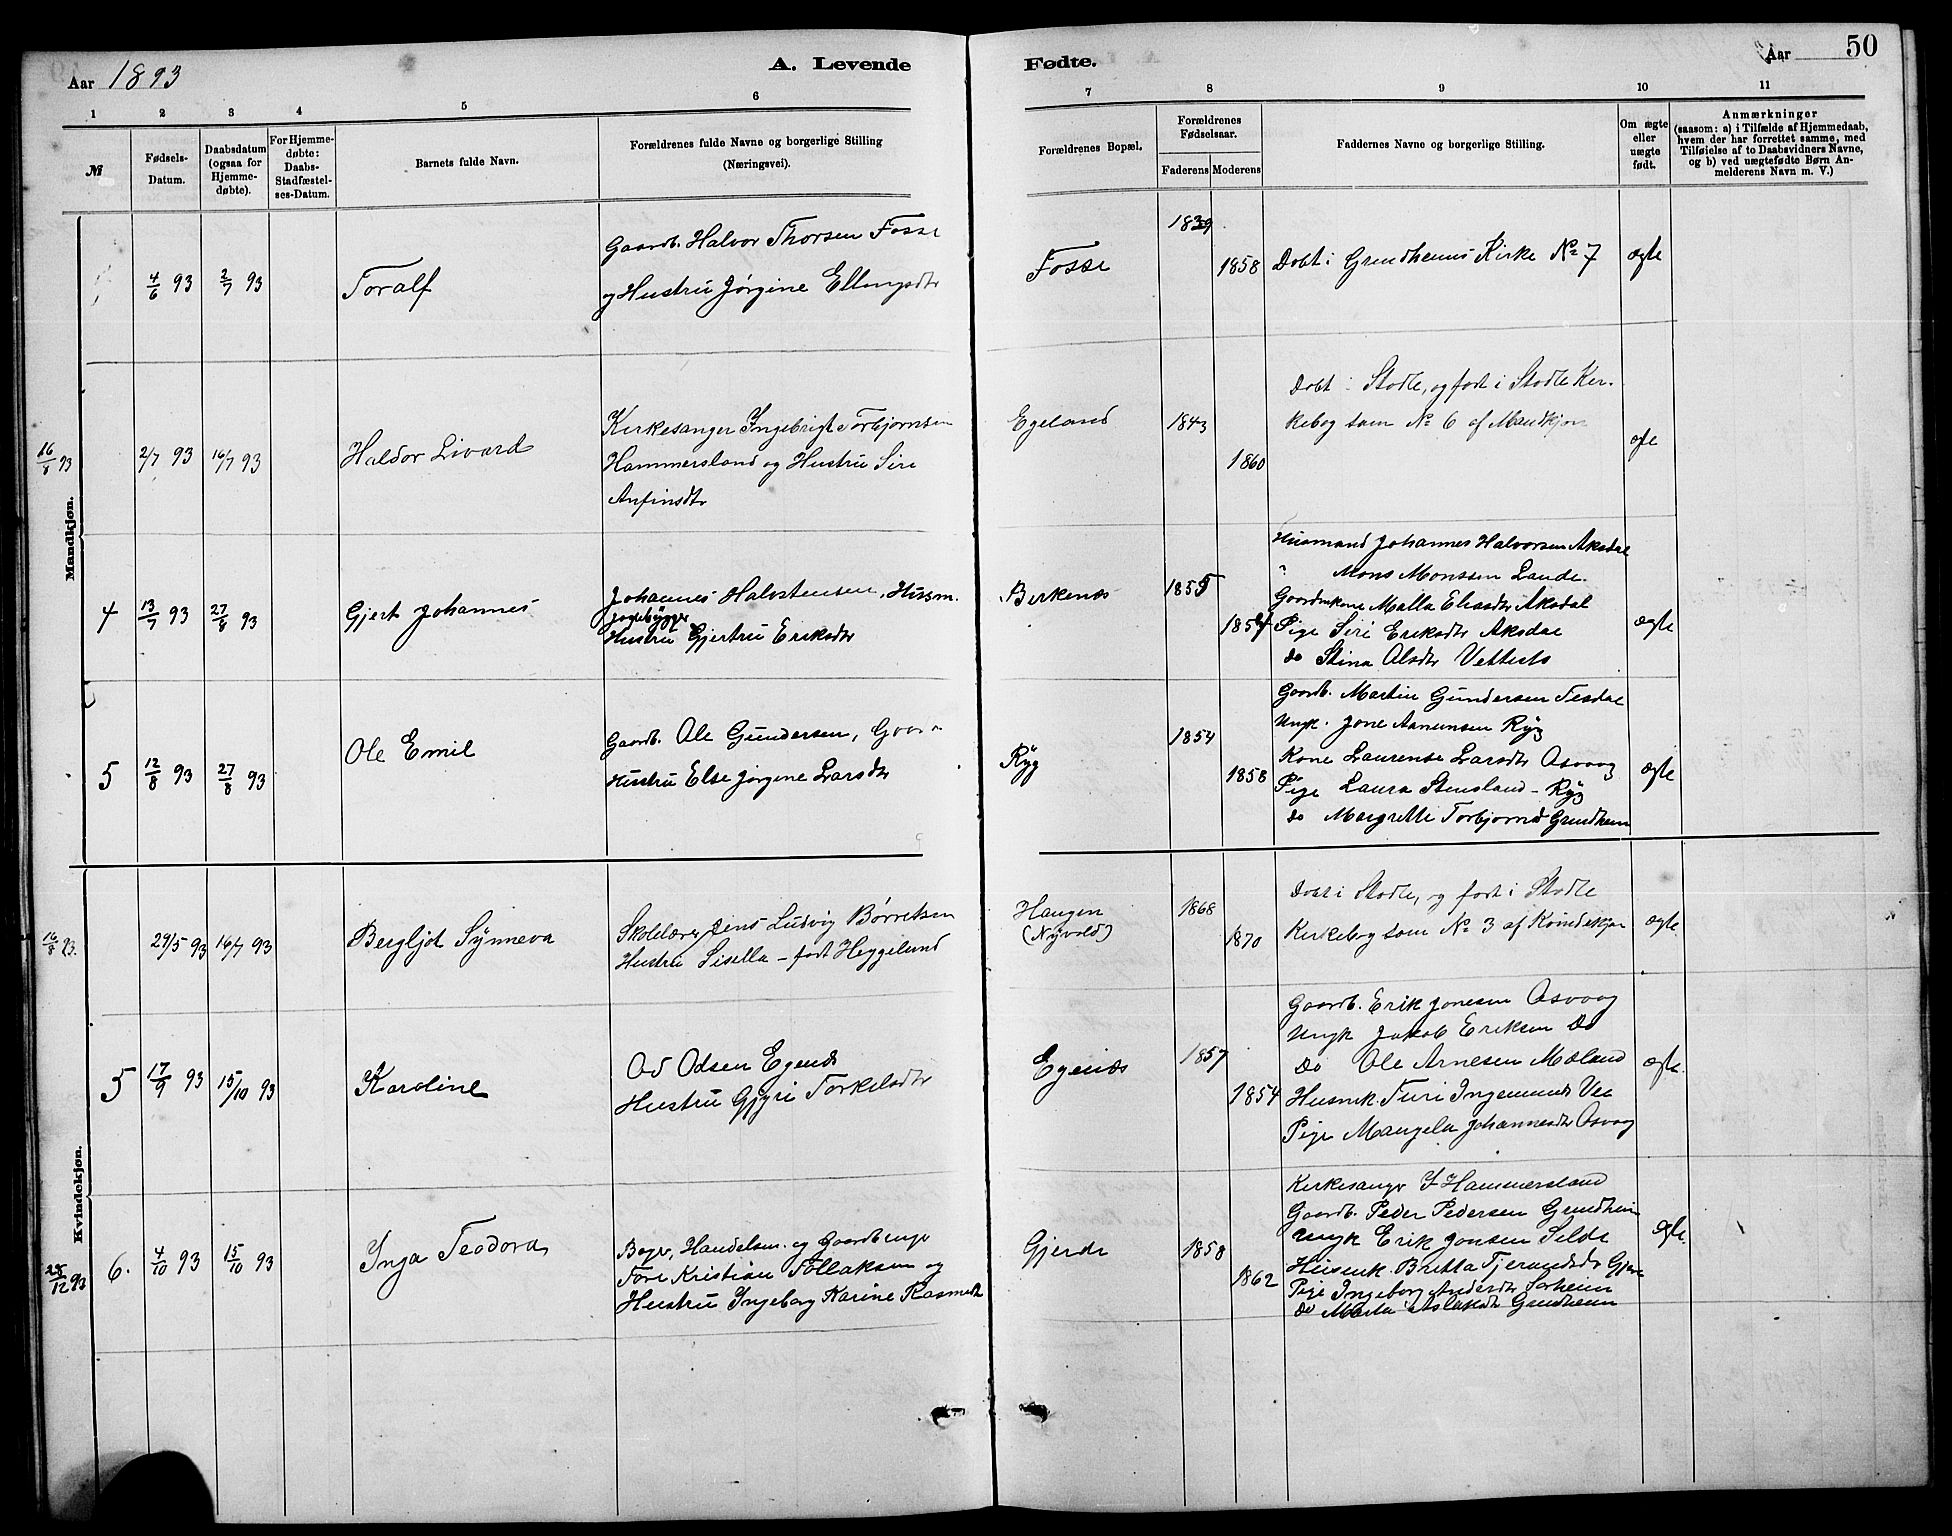 Aar 1893
A. Levende
Fødte.
Aar
50
1 2 3 4 5 6 7 8 9 10 11
№
Fødsels-
Datum.
Daabsdatum
(ogsaa for
Hjemme-
døbte).
For Hjemme-
døbte:
Daabs-
Stadfæstel-
ses-Datum.
Barnets fulde Navn.
Forældrenes fulde Navne og borgerlige Stilling
(Næringsvei).
Forældrenes Bopæl.
Forældrenes
Fødselsaar.
Faderens
Moderens
Faddernes Navne og borgerlige Stilling.
Om ægte
eller
uægte
født.
Anmærkninger
(saasom: a) i Tilfælde af Hjemmedaab,
hvem der har forrettet samme, med
Tilføielse af to Daabsvidners Navne,
og b) ved uægtefødte Børn An-
melderens Navn m. V.)
Mandkjøn.
4/6 93
2/7 93
Toralf
Gaardb. Halvor Thorsen Fosse
og Hustru Jørgine Ellingsdtr
Fosse
1839
1858
Døbt i Grindheims Kirke № 7
ægte
16/8 93
2/7 93
16/7 93
Haldor Sivard
Kirkesanger Ingebrigt Torbjørnsen
Hammersland og Hustru Siri
Anfinsdtr
Egeland
1843
1860
Døbt i Stødle, og født i Stødle Kir-
kebog som № 6 af Mandkjøn
ægte
4
13/7 93
27/8 93
Gjert Johannes
Johannes Halvstensen, Husm.
Hustru Gjertru Eriksdtr
Birkenæs
1855
1854
Husmand Johannes Halvorsen Aksdal
" Mons Monssen Lande
Gaardmkone Malla Eliasdtr Aksdal
Pige Siri Eriksdtr Aksdal
do Stina Olsdtr
ægte
5
12/8 93
27/8 93
Ole Emil
Gaardb. Ole Gundersen,
Hustru Else Jørgine Larsdtr
Ryg
1854
1858
Gaardb. Martin Gundersen Tesdal
Ungk. Jone Aanensen Ryg
Kone Laurense Larsdtr Osvaag
Pige Laura Stensland - Ryg
do Margrethe Torbjørnsd Grindheim
ægte
Kvindekjøn.
16/8 93.
29/5 93
16/7 93
Bergljot Synneva
Skolelærer Jens Ludvig Børretsen
Hustru Sisella - født Heggelund
Haugen
(Nyvold)
1868
1870
Døbt i Stødle, og født i Stødle
Kirkebog som № 3 af Kvindekjøn
ægte
5
17/9 93
15/10 93
Karoline
Od Odsen Egenæs
Hustru Gjyri Torkelsdtr
Egenæs
1857
1854
Gaardb. Erik Jonesen Osvaag
Ungk Jakob Eriksen Do
Do Ole Arnesen Mæland
Husmk. Turi Ingemunds Vee
Pige Mangela Johannesdtr Osvaag
ægte.
28/12 93
6.
4/10 93
15/10 93
Inga Teodora
Bager, Handelsm. og Gaardbruger
Tore Kristian Tollaksen og
Hustru Ingeborg Karine Rasmdt
Gjerde
1858
1862
Kirkesanger I Hammersland
Gaardb. Peder Pedersen Grindheim
Ungk Erik Jonsen Silde
Husmk. Britta Tjerandsdr Gjerde
Pige Ingeborg Andersdtr Sørheim
do Marta Aslaksdtr Grindheim
ægte.